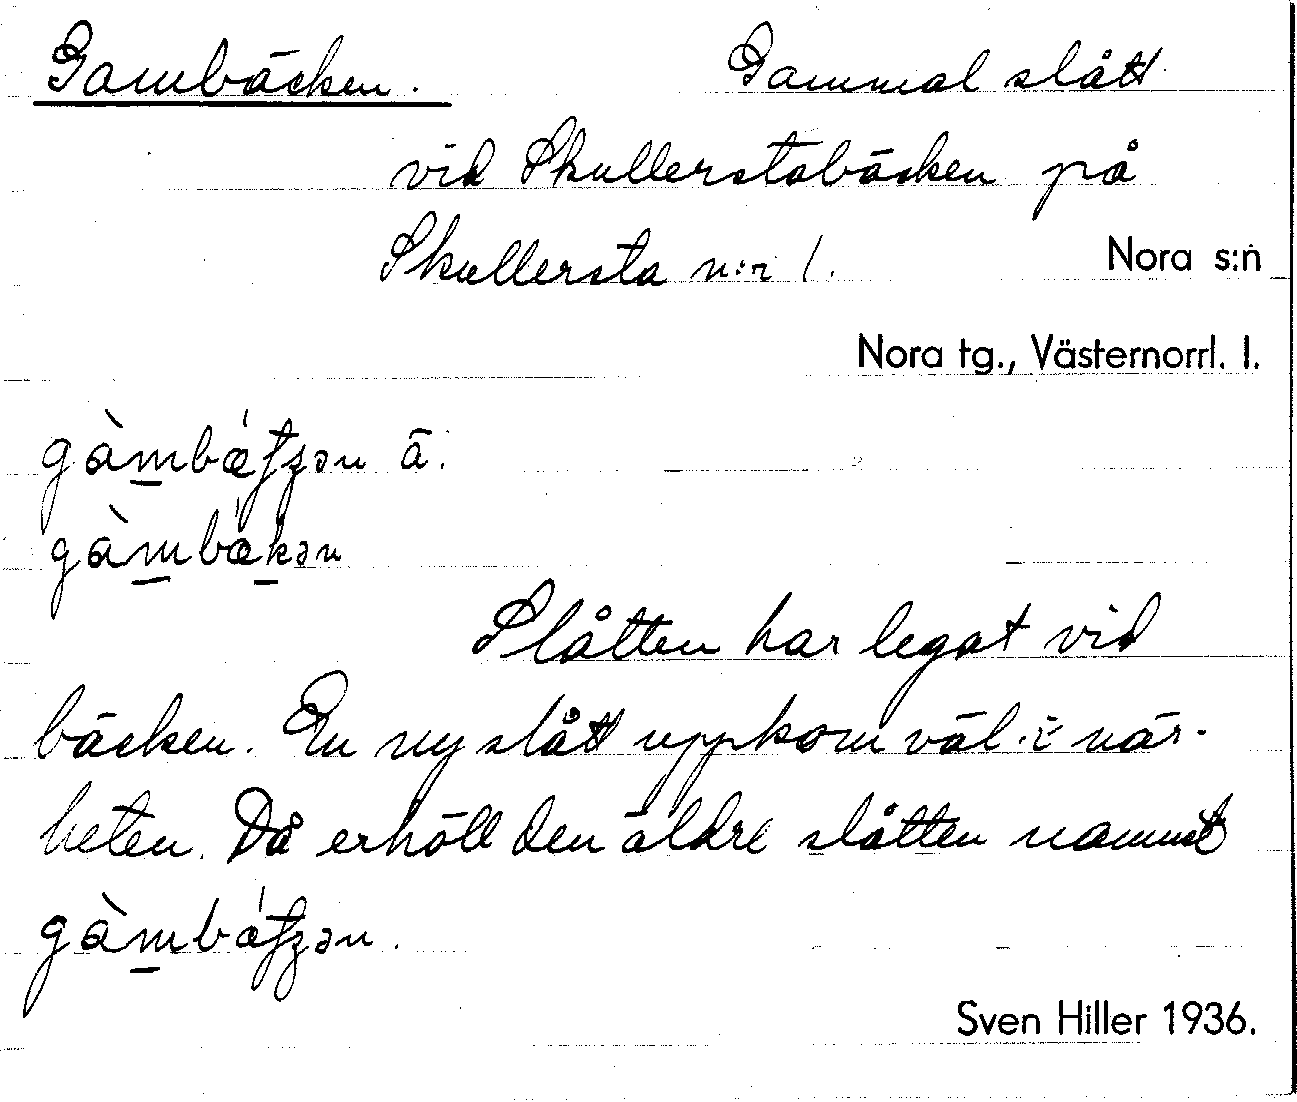 Gambäcken. Gammal slått
vid Skullerstabäcken på
Skullersta n:r 1. Nora s:n
Nora tg., Västernorrl. l.
gàm̲bǽʈʂən ä.
gàm̲bæ̍k̲ən
Slåtten har legat vid
bäcken. En ny slått uppkom väl i när-
heten. Då erhöll den äldre slåtten namnet
gàm̲bǽʈʂən.
Sven Hiller 1936.